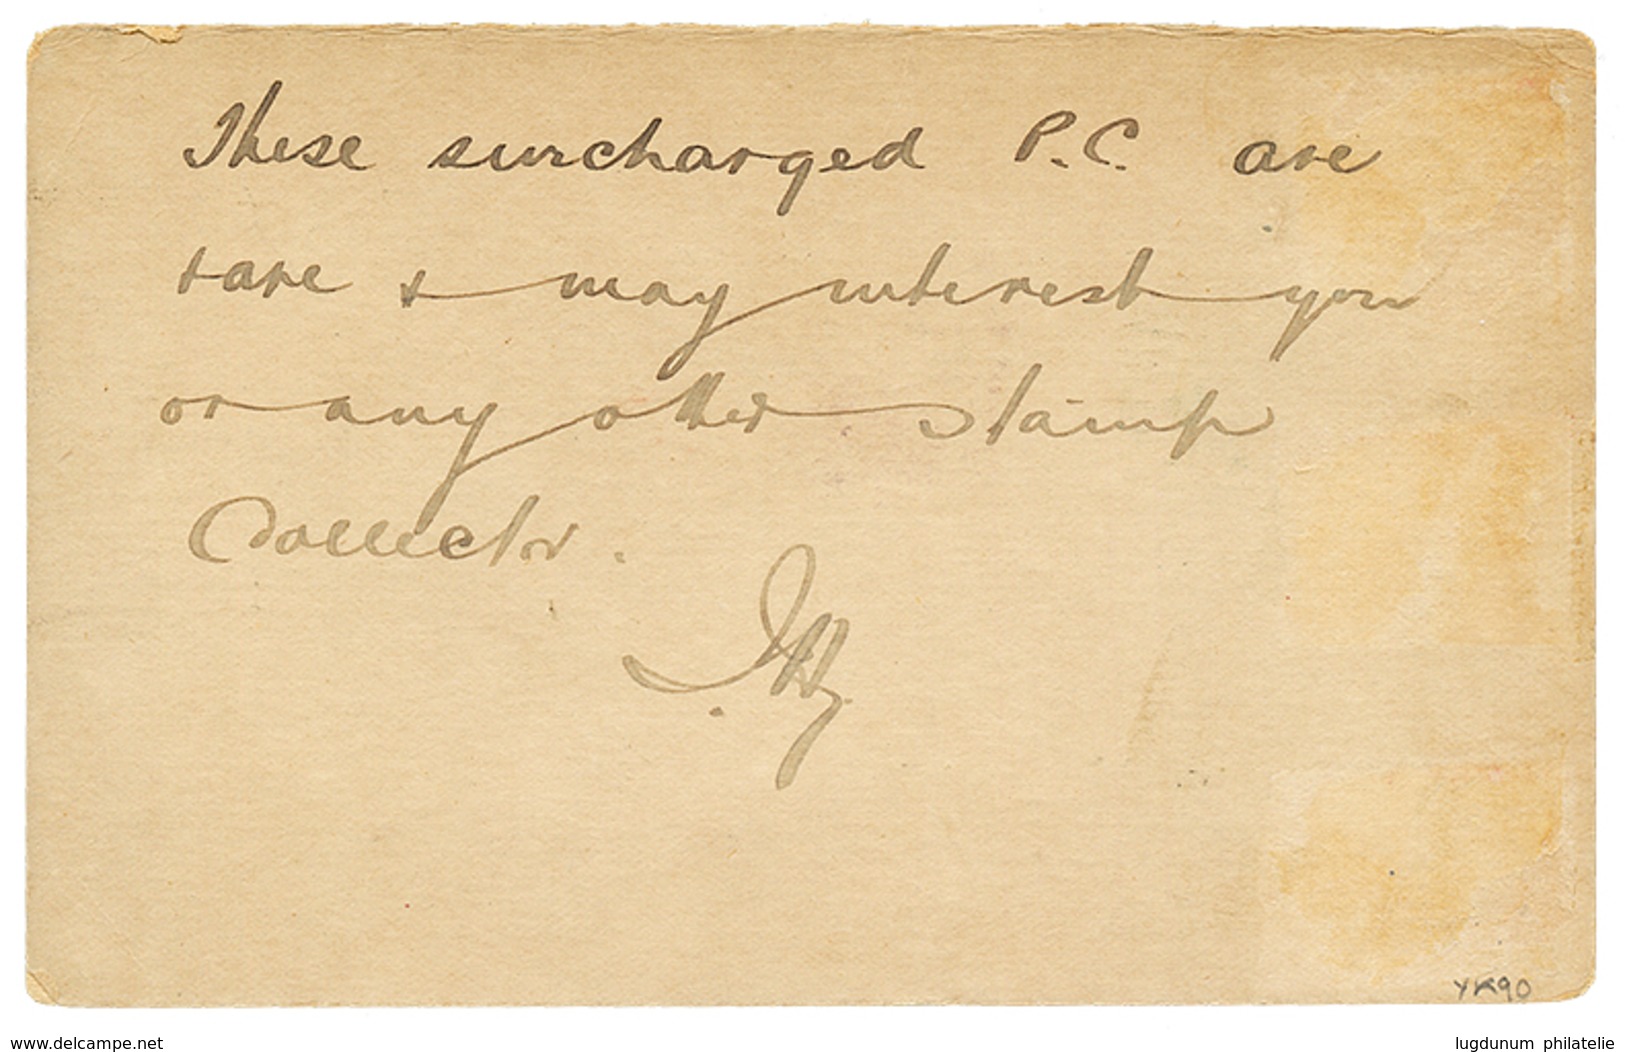 These surcharged P.C. are
rare & may interest you
or any other stamp
Collector.
YK90
www.delcampe.net
lugdunum philatelie